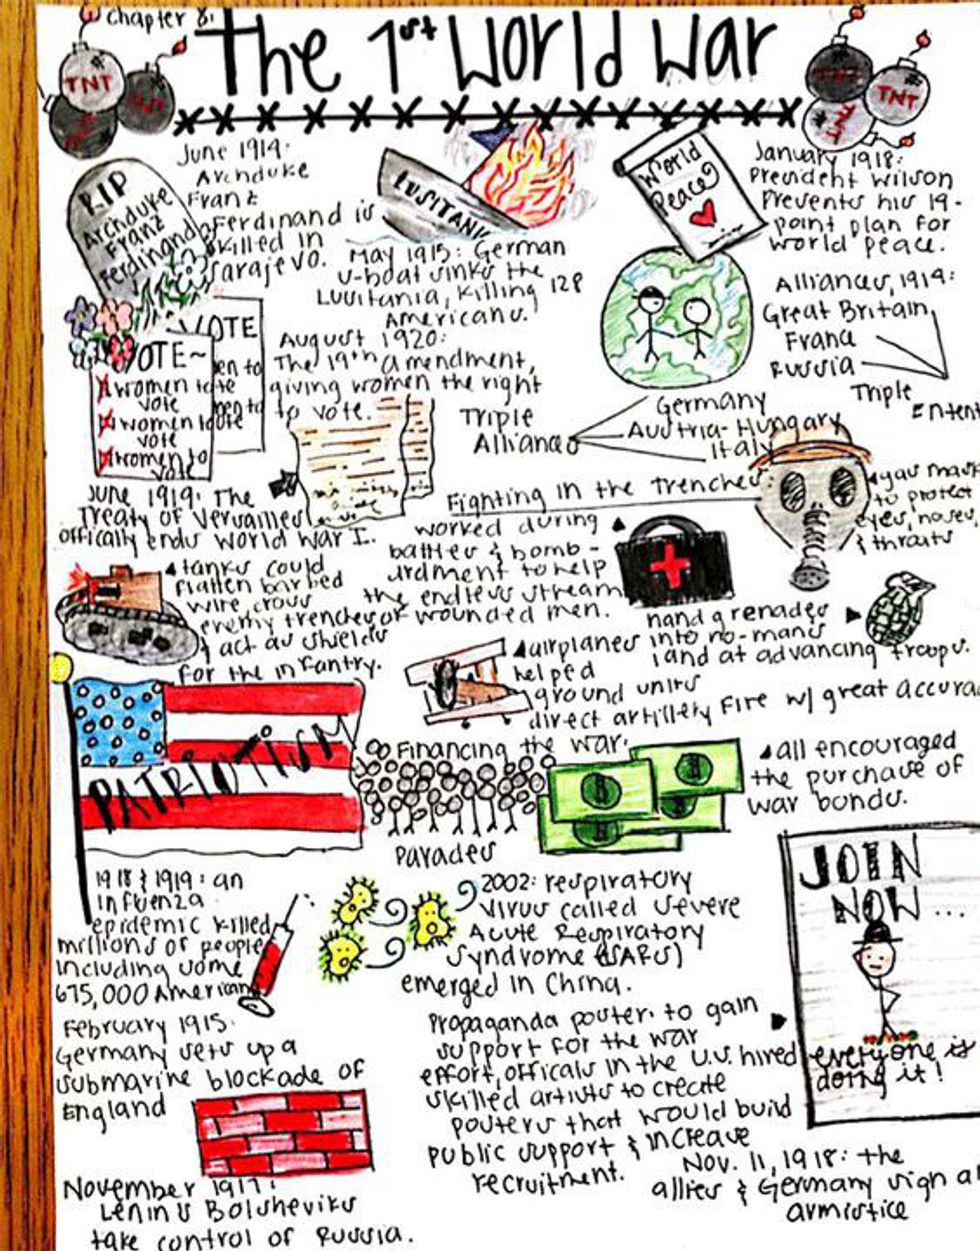 Chapter 8:
The 1st World War
TNT
TNT
TNT
TNT
TNT
TNT
R.I.P
Archduke
Franz
Ferdinand
June 1914:
Archduke
Franz
Ferdinand is
killed in
Sarajevo.
LUSITANIA
May 1915: German
U-boat sinks the
Lusitania, killing 128
Americans.
World
Peace
January 1918:
President Wilson
Presents his 14-
point plan for
world peace.
Alliances, 1914:
Great Britain
France
Russia
Triple
Entent
VOTE
VOTE~
women to
vote
women to
vote
women to
vote
August 1920:
The 19th amendment,
giving women the right
to vote.
Triple
Alliance
Germany
Austria-Hungary
Italy
June 1919: The
Treaty of Versailles
offically ends World War I.
Fighting in the Trenches:
gas mask
to protect
eyes, noses,
& throats
worked during
battles & bomb-
ardment to help
the endless stream
of wounded men.
tanks could
flatten barbed
wire, cross
enemy trenches
& act as shields
for the infantry.
hand grenades
into no-mans
land at advancing troops.
airplanes
helped
ground units
direct artillery fire w/ great accura
PATRIOTISM
Financing the war:
parades
all encouraged
the purchase of
war bonds.
1918 & 1919: an
influenza
epidemic killed
millions of people
including some
675,000 American
2002: respiratory
virus called Severe
Acute Respiratory
Syndrome (SARS)
emerged in China.
JOIN
NOW...
everyone is
doing it!
February 1915:
Germany sets up a
submarine blockade of
England
Propaganda poster: to gain
support for the war
effort, officals in the U.S. hired
skilled artists to create
posters that would build
public support & increase
recruitment.
November 1917:
Lenin's Bolsheviks
take control of Russia.
Nov. 11, 1918: the
allies & Germany sign a
armistice